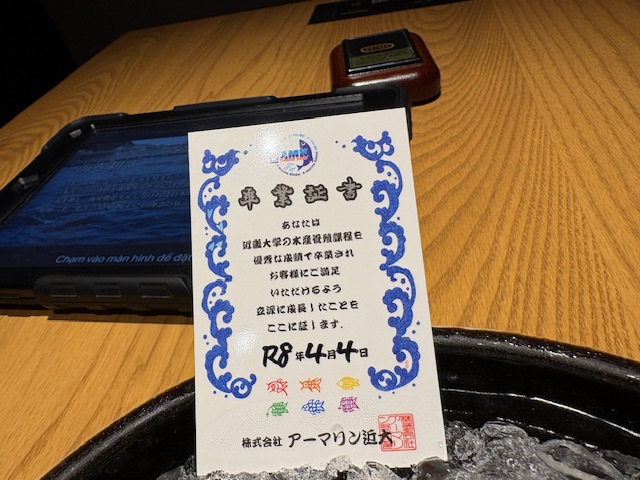 卒業証書
あなたは
近畿大学の水産養殖課程を
優秀な成績で卒業され
お客様にご満足
いただけるよう
立派に成長したことを
ここに証します.
R8年4月4日
株式会社 アーマリン近大
Chạm vào màn hình để đặt